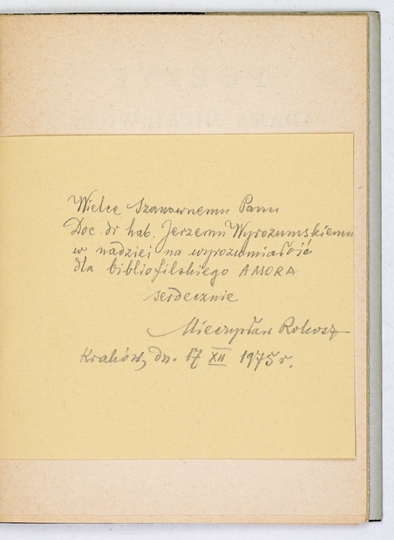 Wielce Szanownemu Panu
Doc dr hab. Jerzemu Wyrozumskiemu
w nadziei na wyrozumiałość
dla bibliofilskiego AMORA
serdecznie
Mieczysław Rokosz
Kraków, dn. 17 XII 1975 r.